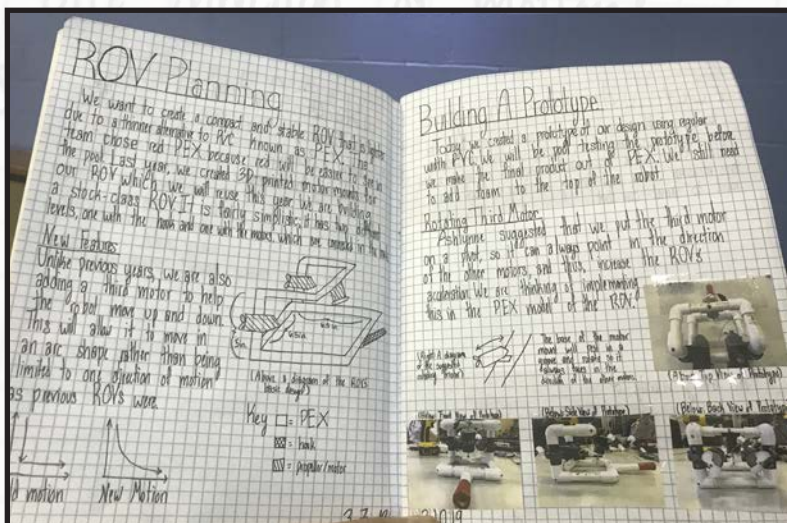 ROV Planning
We want to create a compact and stable ROV that is lighter
due to a thinner alternative to PVC known as PEX. The
team chose red PEX because red will be easier to see in
the pool. Last year, we created 3D printed motor mounts for
our ROV which we will reuse this year. We are building
a stock-class ROV. It is fairly simplistic; it has two different
levels, one with the hook and one with the motors, which are connected in the
New Features
Unlike previous years, we are also
adding a third motor to help
the robot move up and down.
This will allow it to move in
an arc shape rather than being
limited to one direction of motion
as previous ROVs were.
5in
6.5in
(Above is diagram of the ROV's
basic design)
Key
= PEX
= hook
= propeller/motor
motion
New Motion
Building A Prototype
Today we created a prototype of our design using regular
width PVC. We will be pool testing the prototype before
we make the final product out of PEX. We still need
to add foam to the top of the robot.
Rotating Third Motor
Ashlynne suggested that we put the third motor
on a pivot, so it can always point in the direction
of the other motors, and thus, increase the ROV's
acceleration. We are thinking of implementing
this in the PEX model of the ROV.
(Right: A diagram
of the suggested
rotating motor)
The base of the motor
mount will rest in a
groove and rotate so it
always faces in the
direction of the other motors.
(Above: Top View of Prototype)
(Below: Front View of Prototype)
(Below: Side View of Prototype)
(Below: Back View of Prototype)